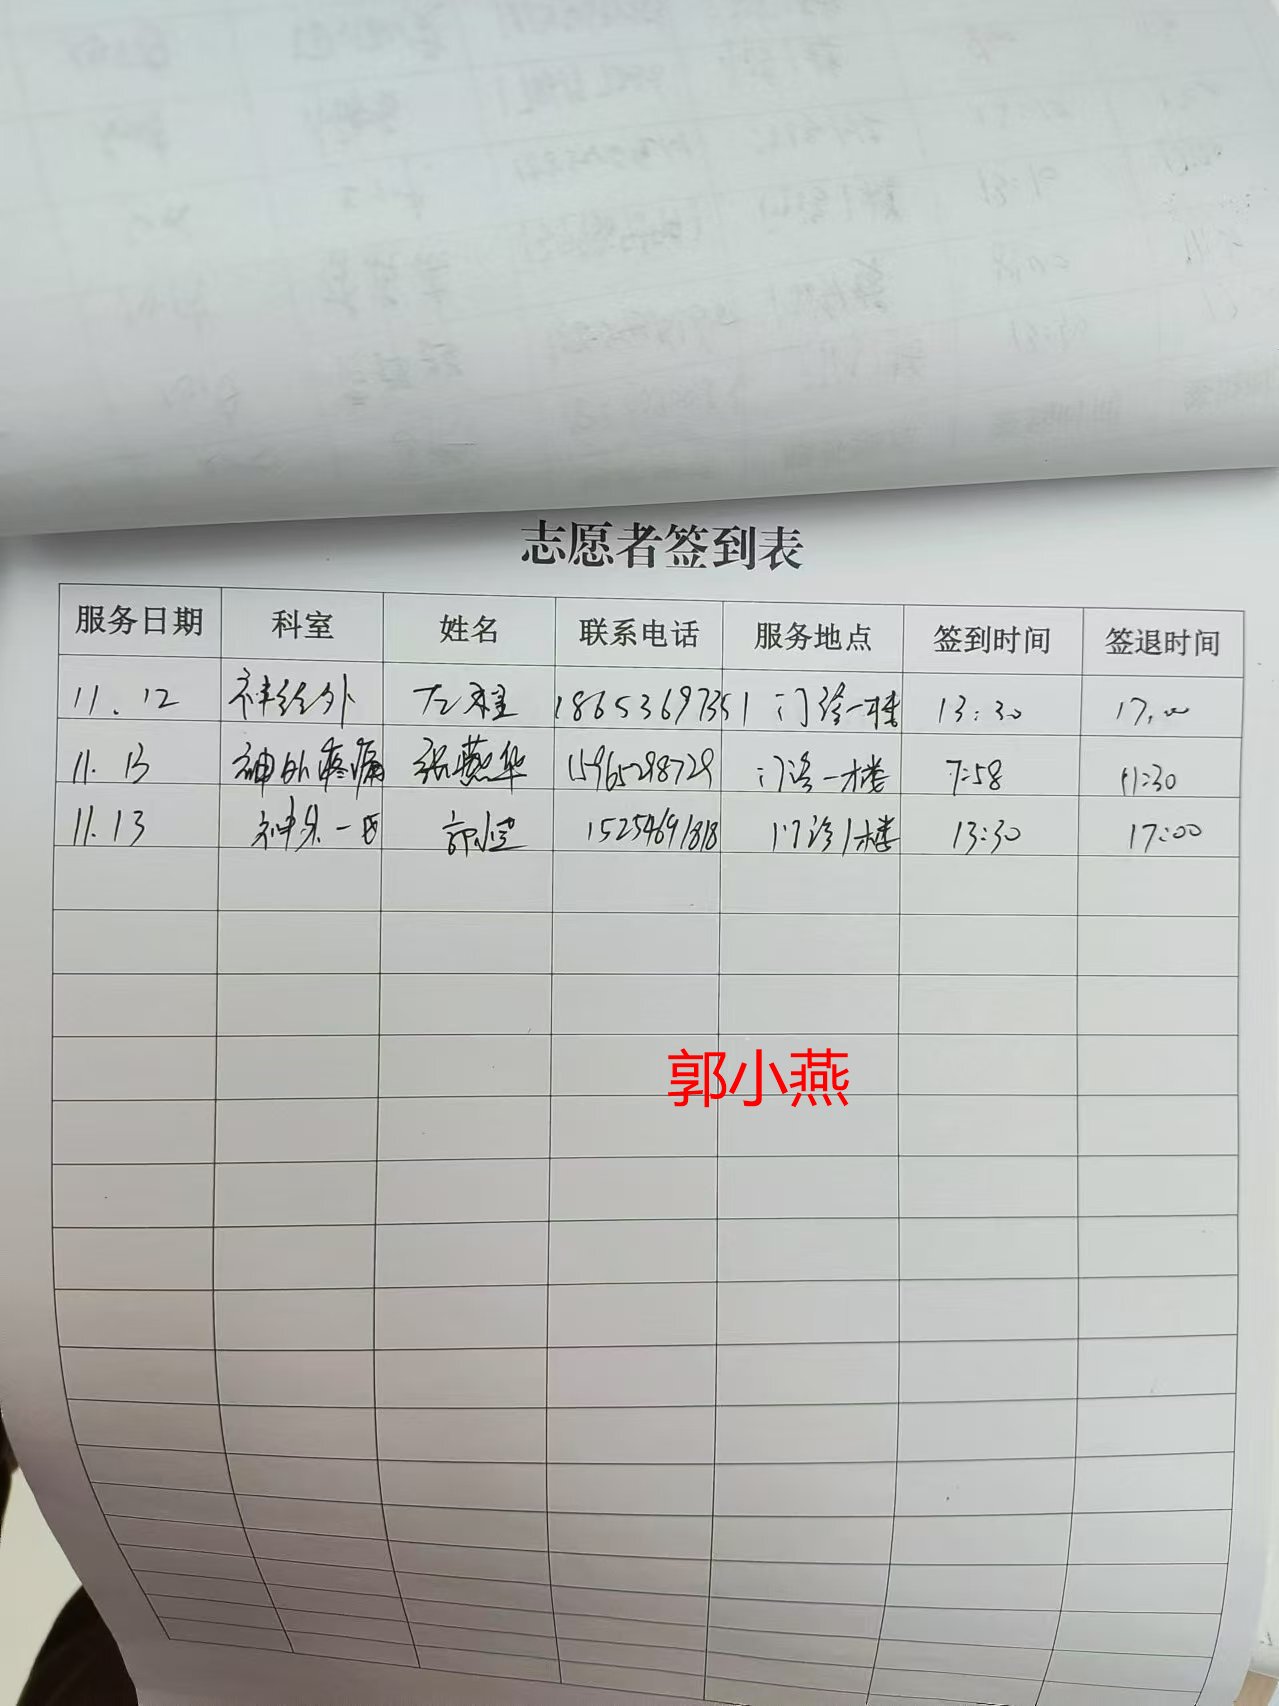 志愿者签到表
服务日期 科室 姓名 联系电话 服务地点 签到时间 签退时间
11.12 神经外 左 18653697351 门诊一楼 13:30 17:00
11.13 神外疼痛 张燕华 15965298729 门诊一楼 7:58 11:30
11.13 神外一区 15254691818 门诊1楼 13:30 17:00
郭小燕